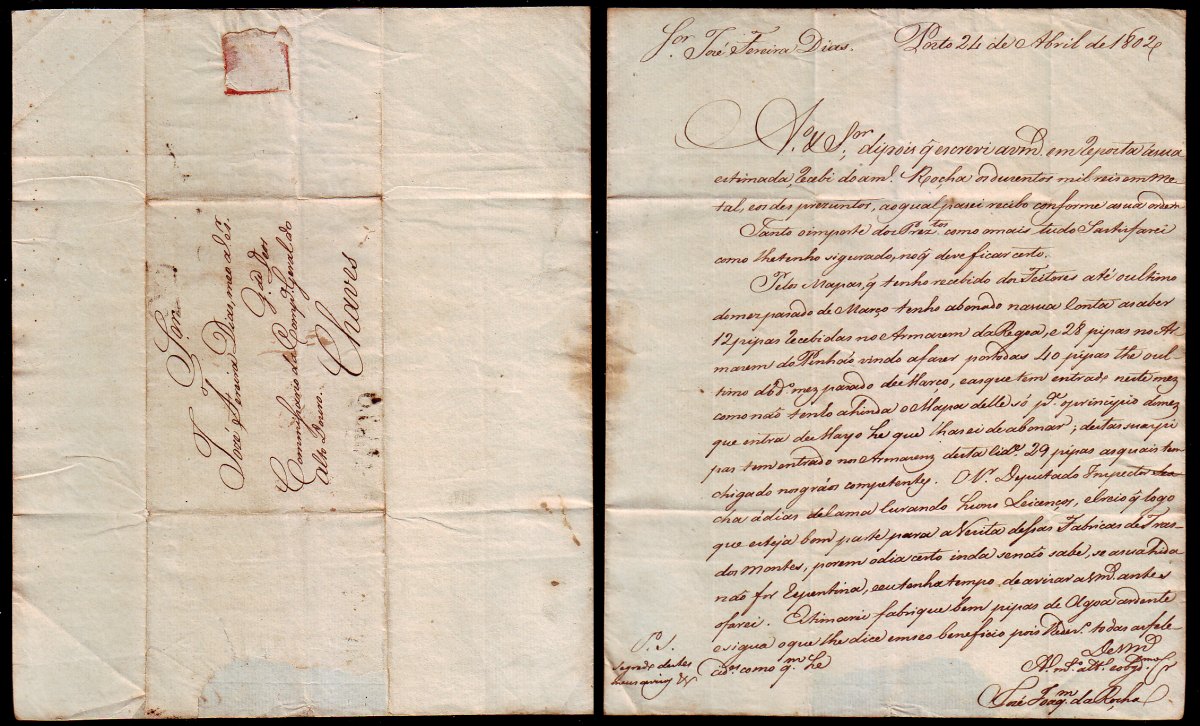 Snr.
José Pereira Dias, meo a Sr.
Gde. Deos
Commissario da Comp.ª Geral do
Alto Douro.
Chaves
Snr. José Pereira Dias. Porto 24 de Abril de 1802
Am.º & Snr., depois q escrevi a vm.ce em reposta á sua
estimada, recebi do am.º Rocha os duzentos mil reis em me-
tal, e os des prezuntos, ao qual pasei recibo conforme a sua ordem
Tanto o importe dos Prez.tos como o mais tudo Sastisfarei
como lhe tenho sigurado, no q deve ficar certo.
Pelos Mapas, q tenho recebido dos Feitores até o ultimo
do mez pasado de Março tenho abonado na sua Conta a saber
12 pipas recebidas no Armazem da Regoa, e 28 pipas no Ar-
mazem do Pinhão vindo a fazer por todas 40 pipas thé o ul-
timo do d.º mez pasado de Março, e as que tem entrado neste mez
como não tenho ahinda o Mapa delle só p.ª o principio do mez
que entra de Mayo he que lhas ei de abonar; destas suas pi-
pas tem entrado nos Armazens desta Cid.e 29 pipas as quais tem
chigado nos gráos competentes. O Sr. Deputado Inspector
cha á dias de cama curando humas Leicenços, e creio q logo
que esteja bom parte para a Vezita desas Fabricas de Tras
dos Montes, porem o dia certo inda se não sabe, se a sua hida
não for Repentina, e eu tenha tempo de avizar a vm.ce antes
o farei. Estimarei fabrique bem pipas de Agoa ardente
e sigua o que lhe dice em seo beneficio pois dezejo todas as fele-
cid.es como q.m he
De Vm.ce
P. S.
Segredo destes
meus avizos &
Am.º m.to att.º e obrig.mo Cr.
José Joaq.m da Rocha